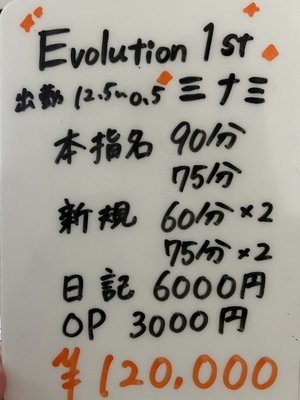 Evolution 1st
出勤 12.5〜0.5 三ナ三
本指名 90分
75分
新規 60分×2
75分×2
日記 6000円
OP 3000円
¥120,000